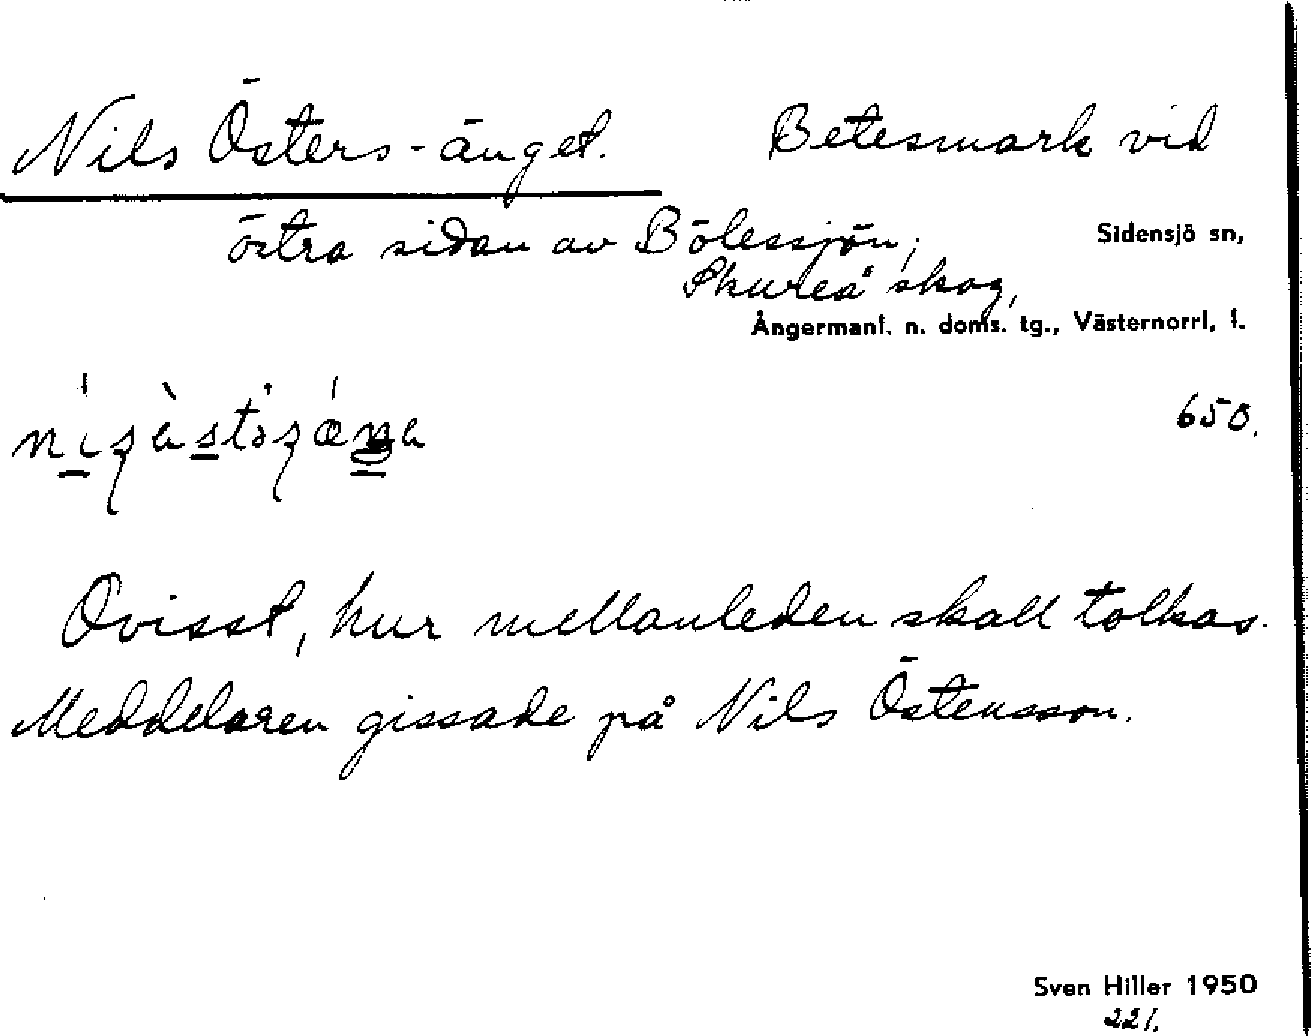 Nils Östers-änget. Betesmark vid
östra sidan av Bölessjön,
Sidensjö sn,
Skureå skog,
Ångermanl. n. doms. tg., Västernorrl. l.
650.
Ovisst, hur mellanleden skall tolkas.
Meddelaren gissade på Nils Östensson.
Sven Hiller 1950
221.